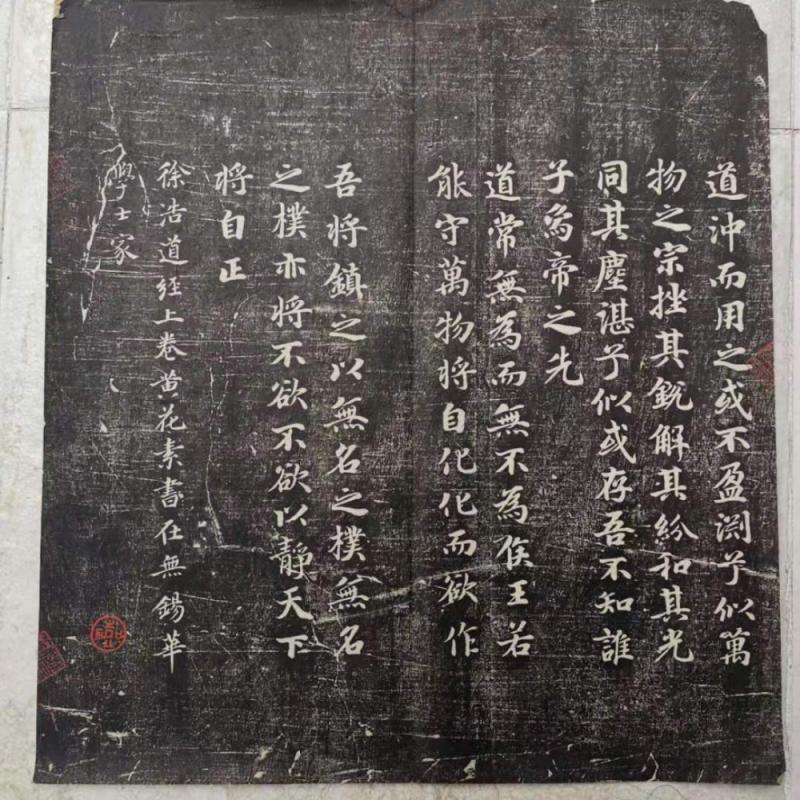 道沖而用之或不盈渊乎似萬
物之宗挫其銳解其紛和其光
同其塵湛乎似或存吾不知誰
子為帝之先
道常無為而無不為侯王若
能守萬物将自化化而欲作
吾将鎮之以無名之樸無名
之樸亦将不欲不欲以靜天下
将自正
徐浩道經上卷黄花素書在無錫華
學士家